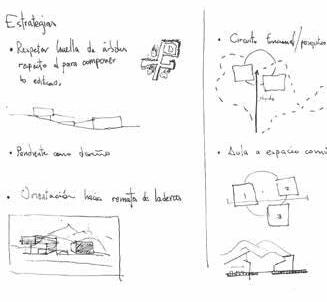 Estrategias
• Respetar huella de árboles
respecto a para componer
lo edificado.
• Pendiente como diseño
• Orientación hacia remate de laderas
• Circuito funcional/
• Aula a espacio
1
2
3